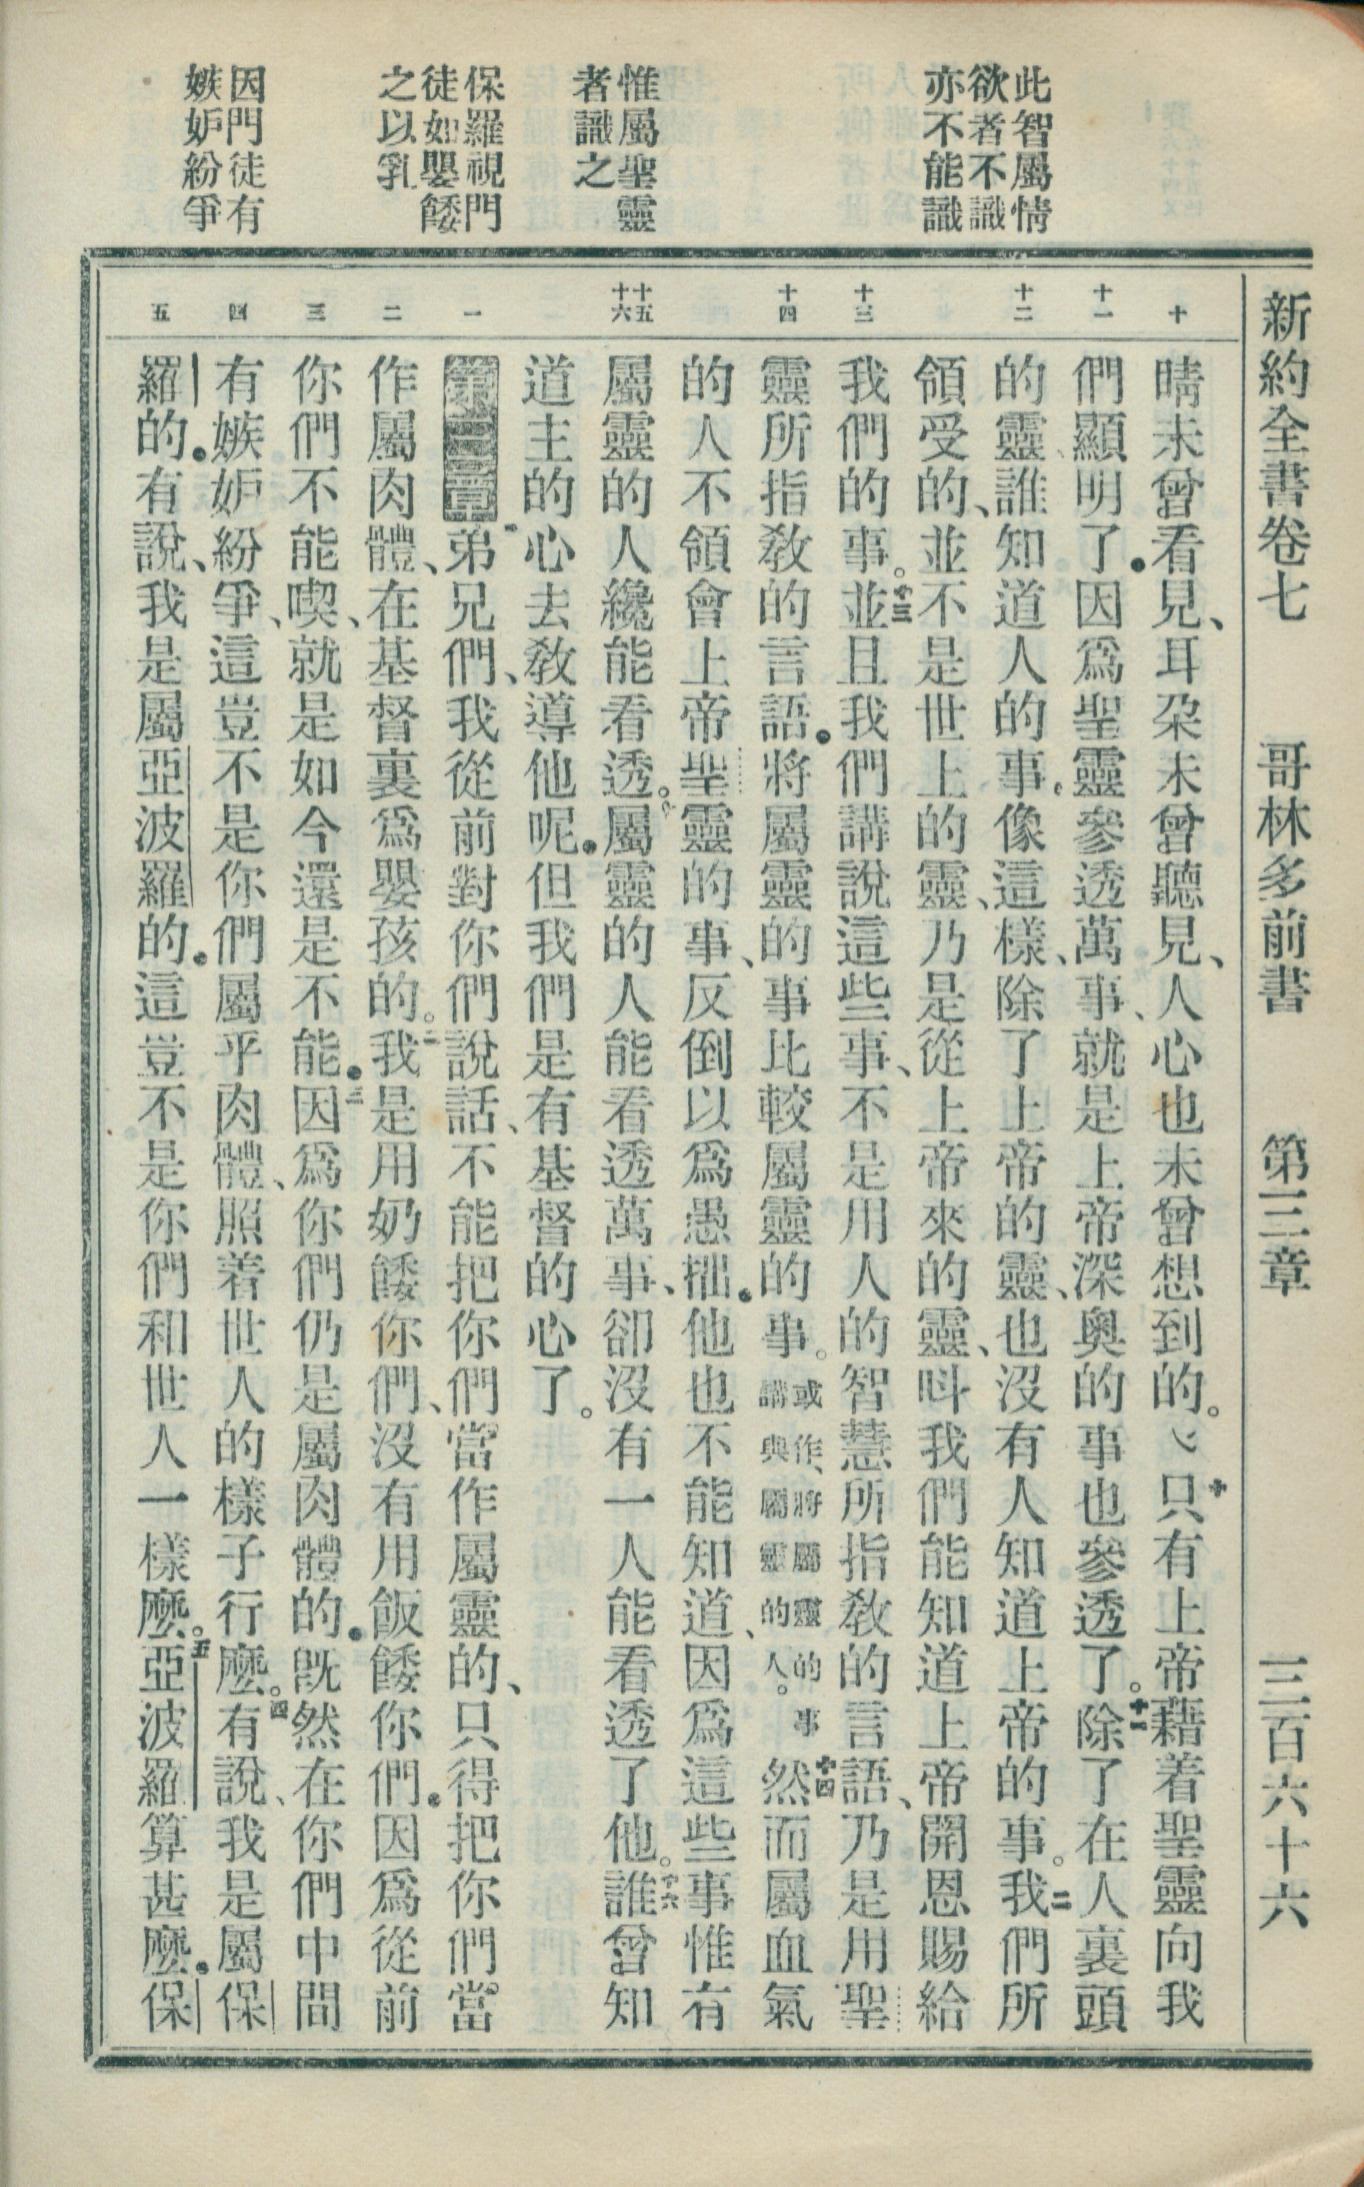 此智屬情
欲者不識
亦不能識
惟屬聖靈
者識之
保羅視門
徒如嬰餧
之以乳
因門徒有
嫉妒紛爭
新約全書卷七 哥林多前書 第三章 三百六十六
十
十一
十二
十三
十四
十五
十六
一
二
三
四
五
睛未曾看見、耳朶未曾聽見、人心也未曾想到的。十只有上帝藉着聖靈向我
們顯明了.因爲聖靈參透萬事、就是上帝深奧的事也參透了。十一除了在人裏頭
的靈、誰知道人的事.像這樣、除了上帝的靈、也沒有人知道上帝的事。十二我們所
領受的、並不是世上的靈、乃是從上帝來的靈、呌我們能知道上帝開恩賜給
我們的事。十三並且我們講說這些事、不是用人的智慧所指敎的言語、乃是用聖
靈所指敎的言語.將屬靈的事比較屬靈的事。或作、將屬靈的事講與屬靈的人。十四然而屬血氣
的人不領會上帝聖靈的事、反倒以爲愚拙.他也不能知道、因爲這些事惟有
屬靈的人纔能看透。屬靈的人能看透萬事、卻沒有一人能看透了他。十六誰曾知
道主的心去敎導他呢.但我們是有基督的心了。
第三章弟兄們、我從前對你們說話、不能把你們當作屬靈的、只得把你們當
作屬肉體、在基督裏爲嬰孩的。二我是用奶餧你們、沒有用飯餧你們.因爲從前
你們不能喫、就是如今還是不能.三因爲你們仍是屬肉體的.旣然在你們中間
有嫉妒紛爭、這豈不是你們屬乎肉體、照着世人的樣子行麼。四有說、我是屬保
羅的.有說、我是屬亞波羅的.這豈不是你們和世人一樣麼。五亞波羅算甚麼.保